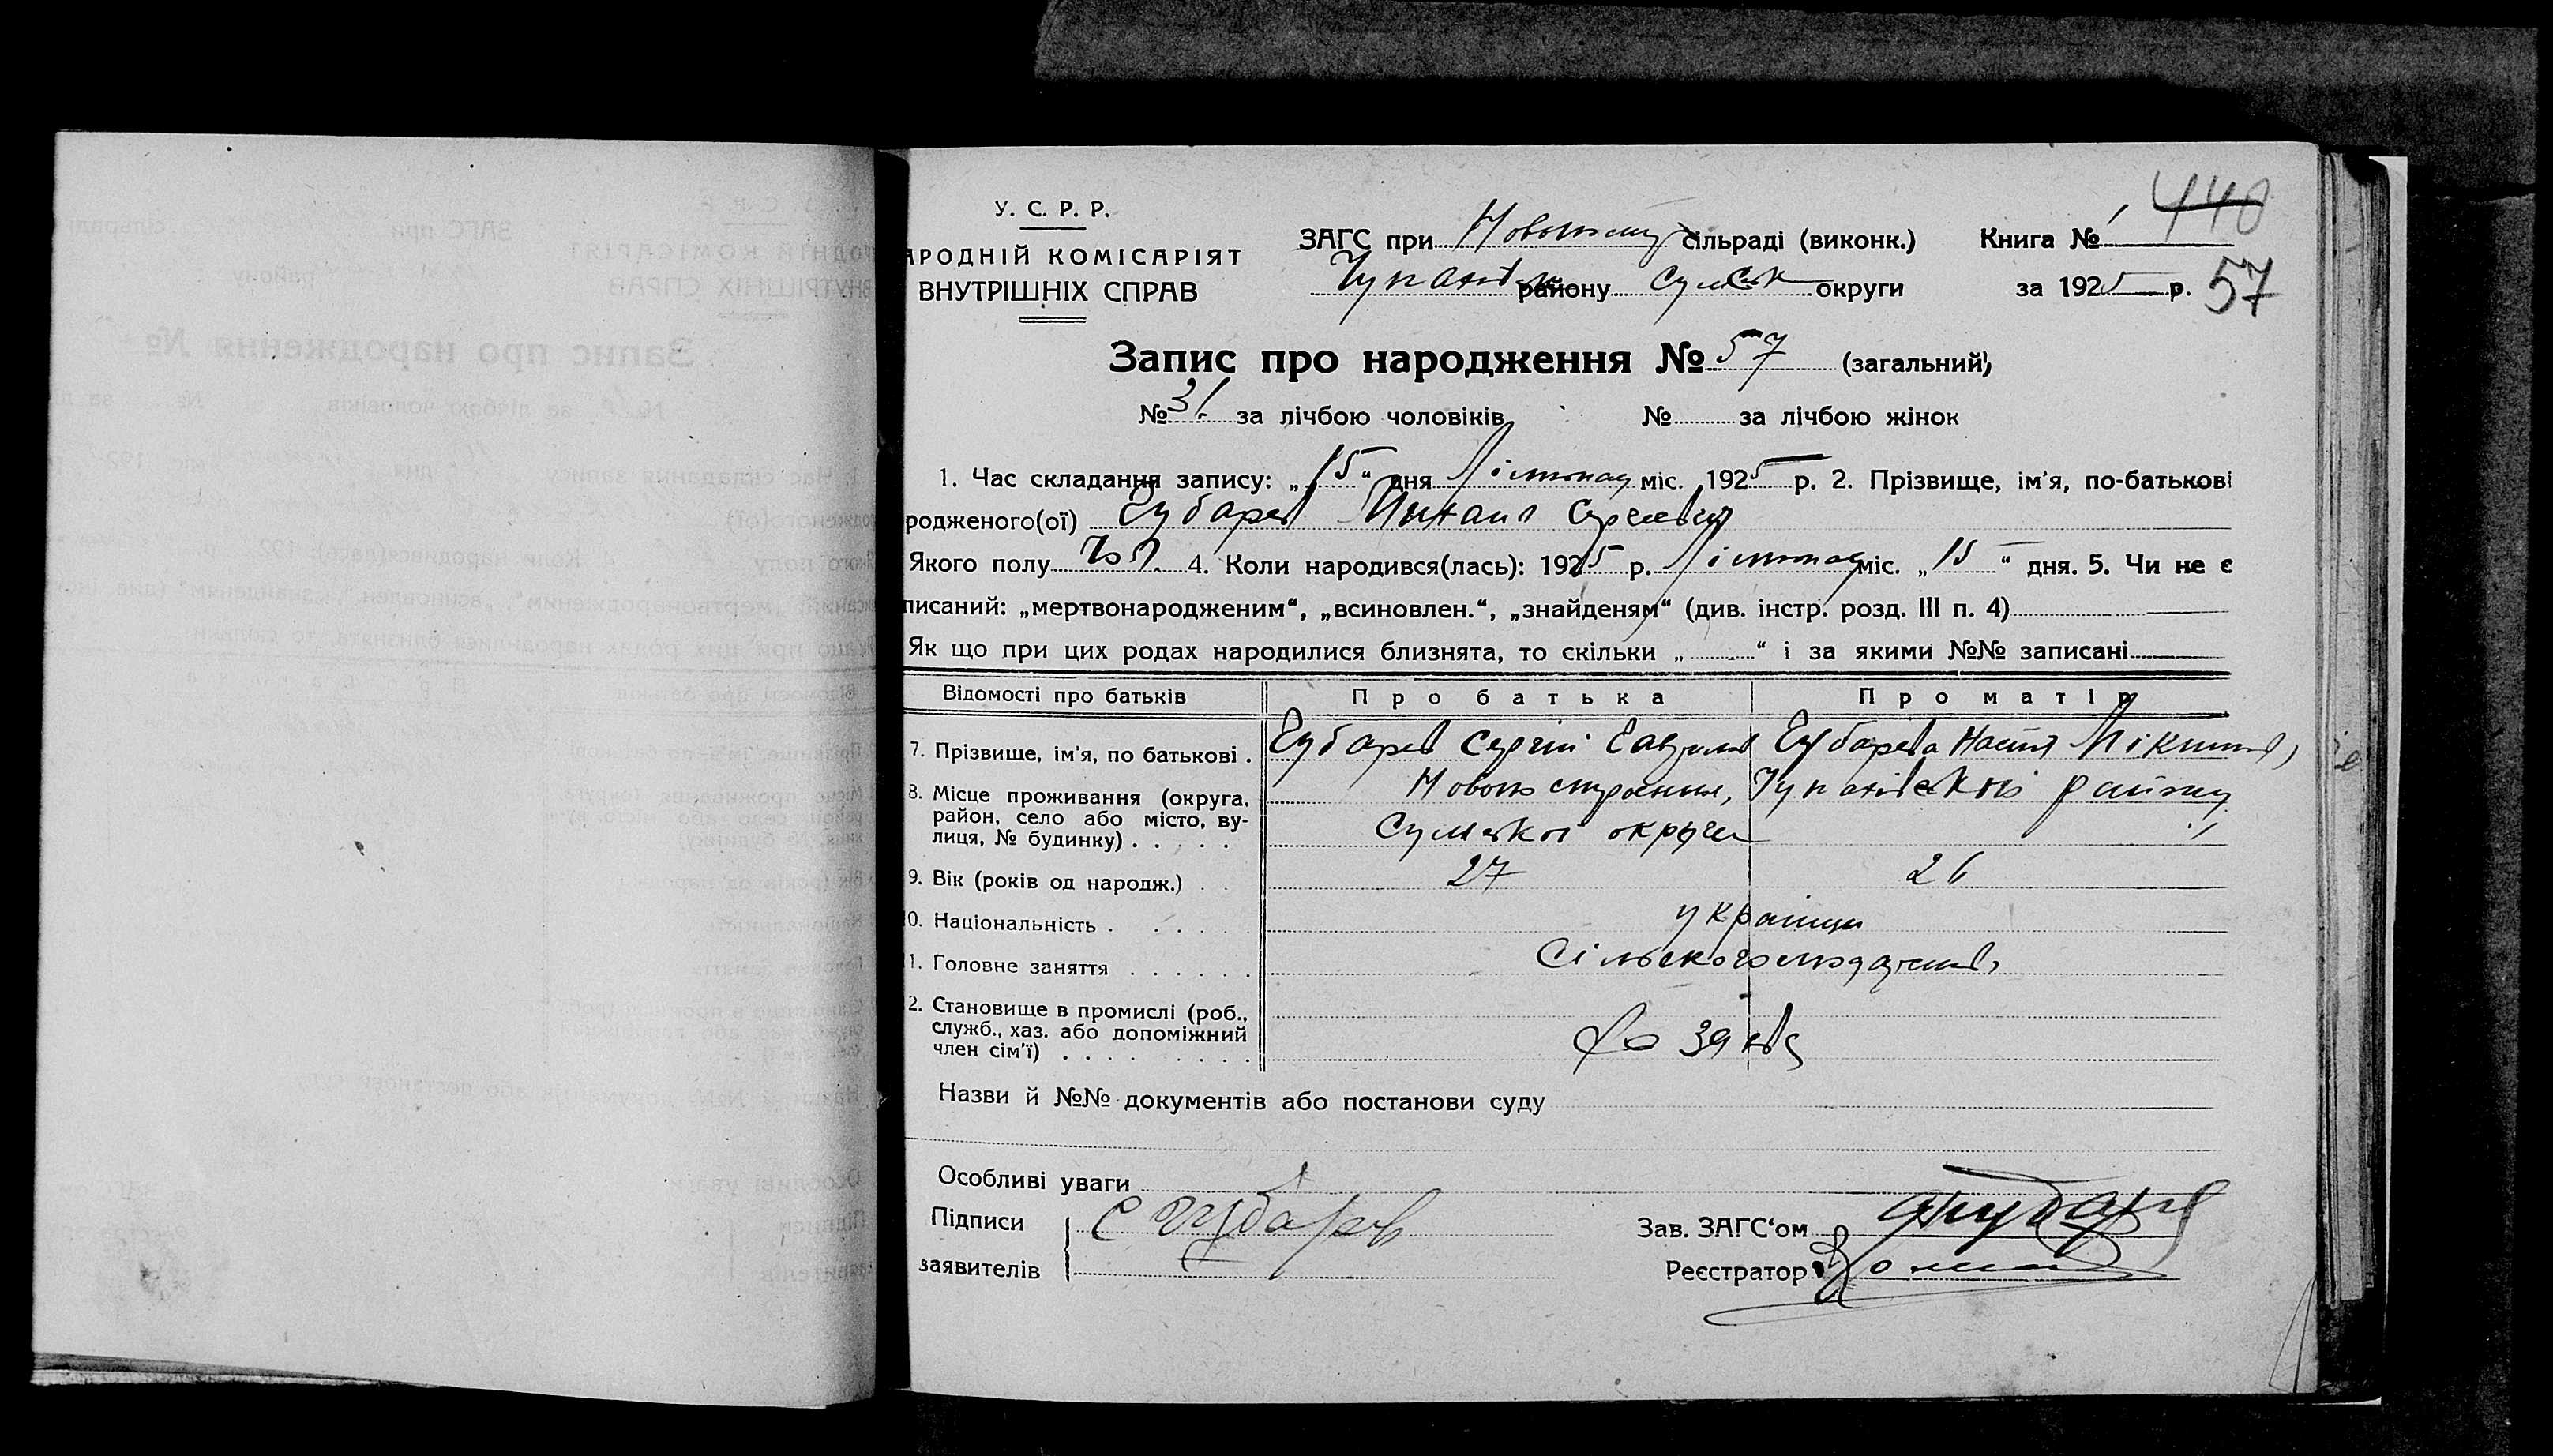 У. С. Р. Р.
АРОДНІЙ КОМІСАРІЯТ
ВНУТРІШНІХ СПРАВ
ЗАГС при сільраді (виконк.) Книга № 1 440
району Сумськ округи за 1925 р. 57
Запис про народження № 57 (загальний)
№ 31 за лічбою чоловіків № за лічбою жінок
1. Час складання запису: „15“ дня Лістопад міс. 1925 р. 2. Прізвище, ім'я, по-батькові
родженого(ої) Губарев Михаил Сергіевич
Якого полу чол. 4. Коли народився(лась): 1925 р. Лістопад міс. „15“ дня. 5. Чи не є
писаний: „мертвонародженим“, „всиновлен.“, „знайденям“ (див. інстр. розд. III п. 4)
Як що при цих родах народилися близнята, то скільки „ “ і за якими №№ записані
Відомості про батьків Про батька Про матір
7. Прізвище, ім'я, по батькові . Губарев Сергій Гаврилов Губарева Настя Мікитов
8. Місце проживання (округа, район, село або місто, ву-
лиця, № будинку) . . . . . Сумської округи
9. Вік (років од народж.) . . 27 26
0. Національність . . . . . українці
1. Головне заняття . . . . . .
2. Становище в промислі (роб.,
служб., хаз. або допоміжний
член сім'ї) . . . . . . . . .
Назви й №№ документів або постанови суду
Особливі уваги
Підписи С Губарев Зав. ЗАГС'ом
заявителів Реєстратор